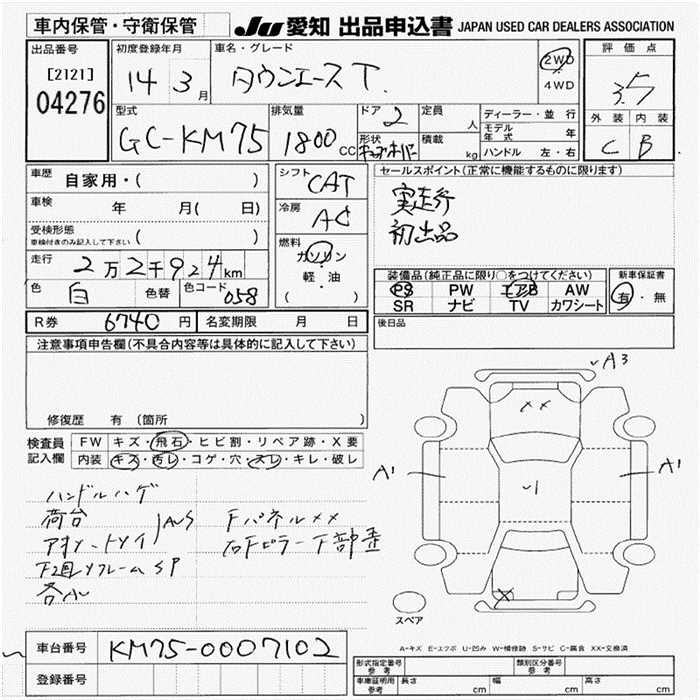 車内保管・守衛保管
JU 愛知 出品申込書 JAPAN USED CAR DEALERS ASSOCIATION
出品番号
[2121]
04276
初度登録年月
14 3月
車名・グレード
タウンエース T.
2WD
4WD
評価点
3.5
外装 内装
C B
型式
GC-KM75
排気量
1800 CC
ドア 2
形状
定員 人
積載 kg
ディーラー・並行
モデル年式 年
ハンドル 左・右
車歴 自家用・( )
車検 年 月( 日)
受検形態
車検付きのみ記入して下さい ( )
走行 2万2千924km
色 白 色替 色コード 058
シフト CAT
冷房 AC
燃料
ガソリン
軽・油
( )
セールスポイント(正常に機能するものに限ります)
実走行
初出品
装備品(純正品に限り○をつけてください)
PS PW エアB AW
SR ナビ TV カワシート
新車保証書
有・無
R券 6740円 名変期限 月 日
後日品
注意事項申告欄(不具合内容等は具体的に記入して下さい)
修復歴 有 (箇所 )
検査員記入欄
FW キズ・飛石・ヒビ割・リペア跡・X要
内装 キズ・汚レ・コゲ・穴・スレ・キレ・破レ
ハンドルハゲ
荷台
AUS
Fパネルxx
右Fピラー下部歪
SP
A3
A1
A1
xx
1
X
スペア
A-キズ E-エクボ U-凹み W-補修跡 S-サビ C-腐食 XX-交換済
車台番号 KM75-0007102
登録番号
形式指定番号 参考
類別区分番号 参考
車庫証明用 参考 長さ cm 幅 cm 高さ cm